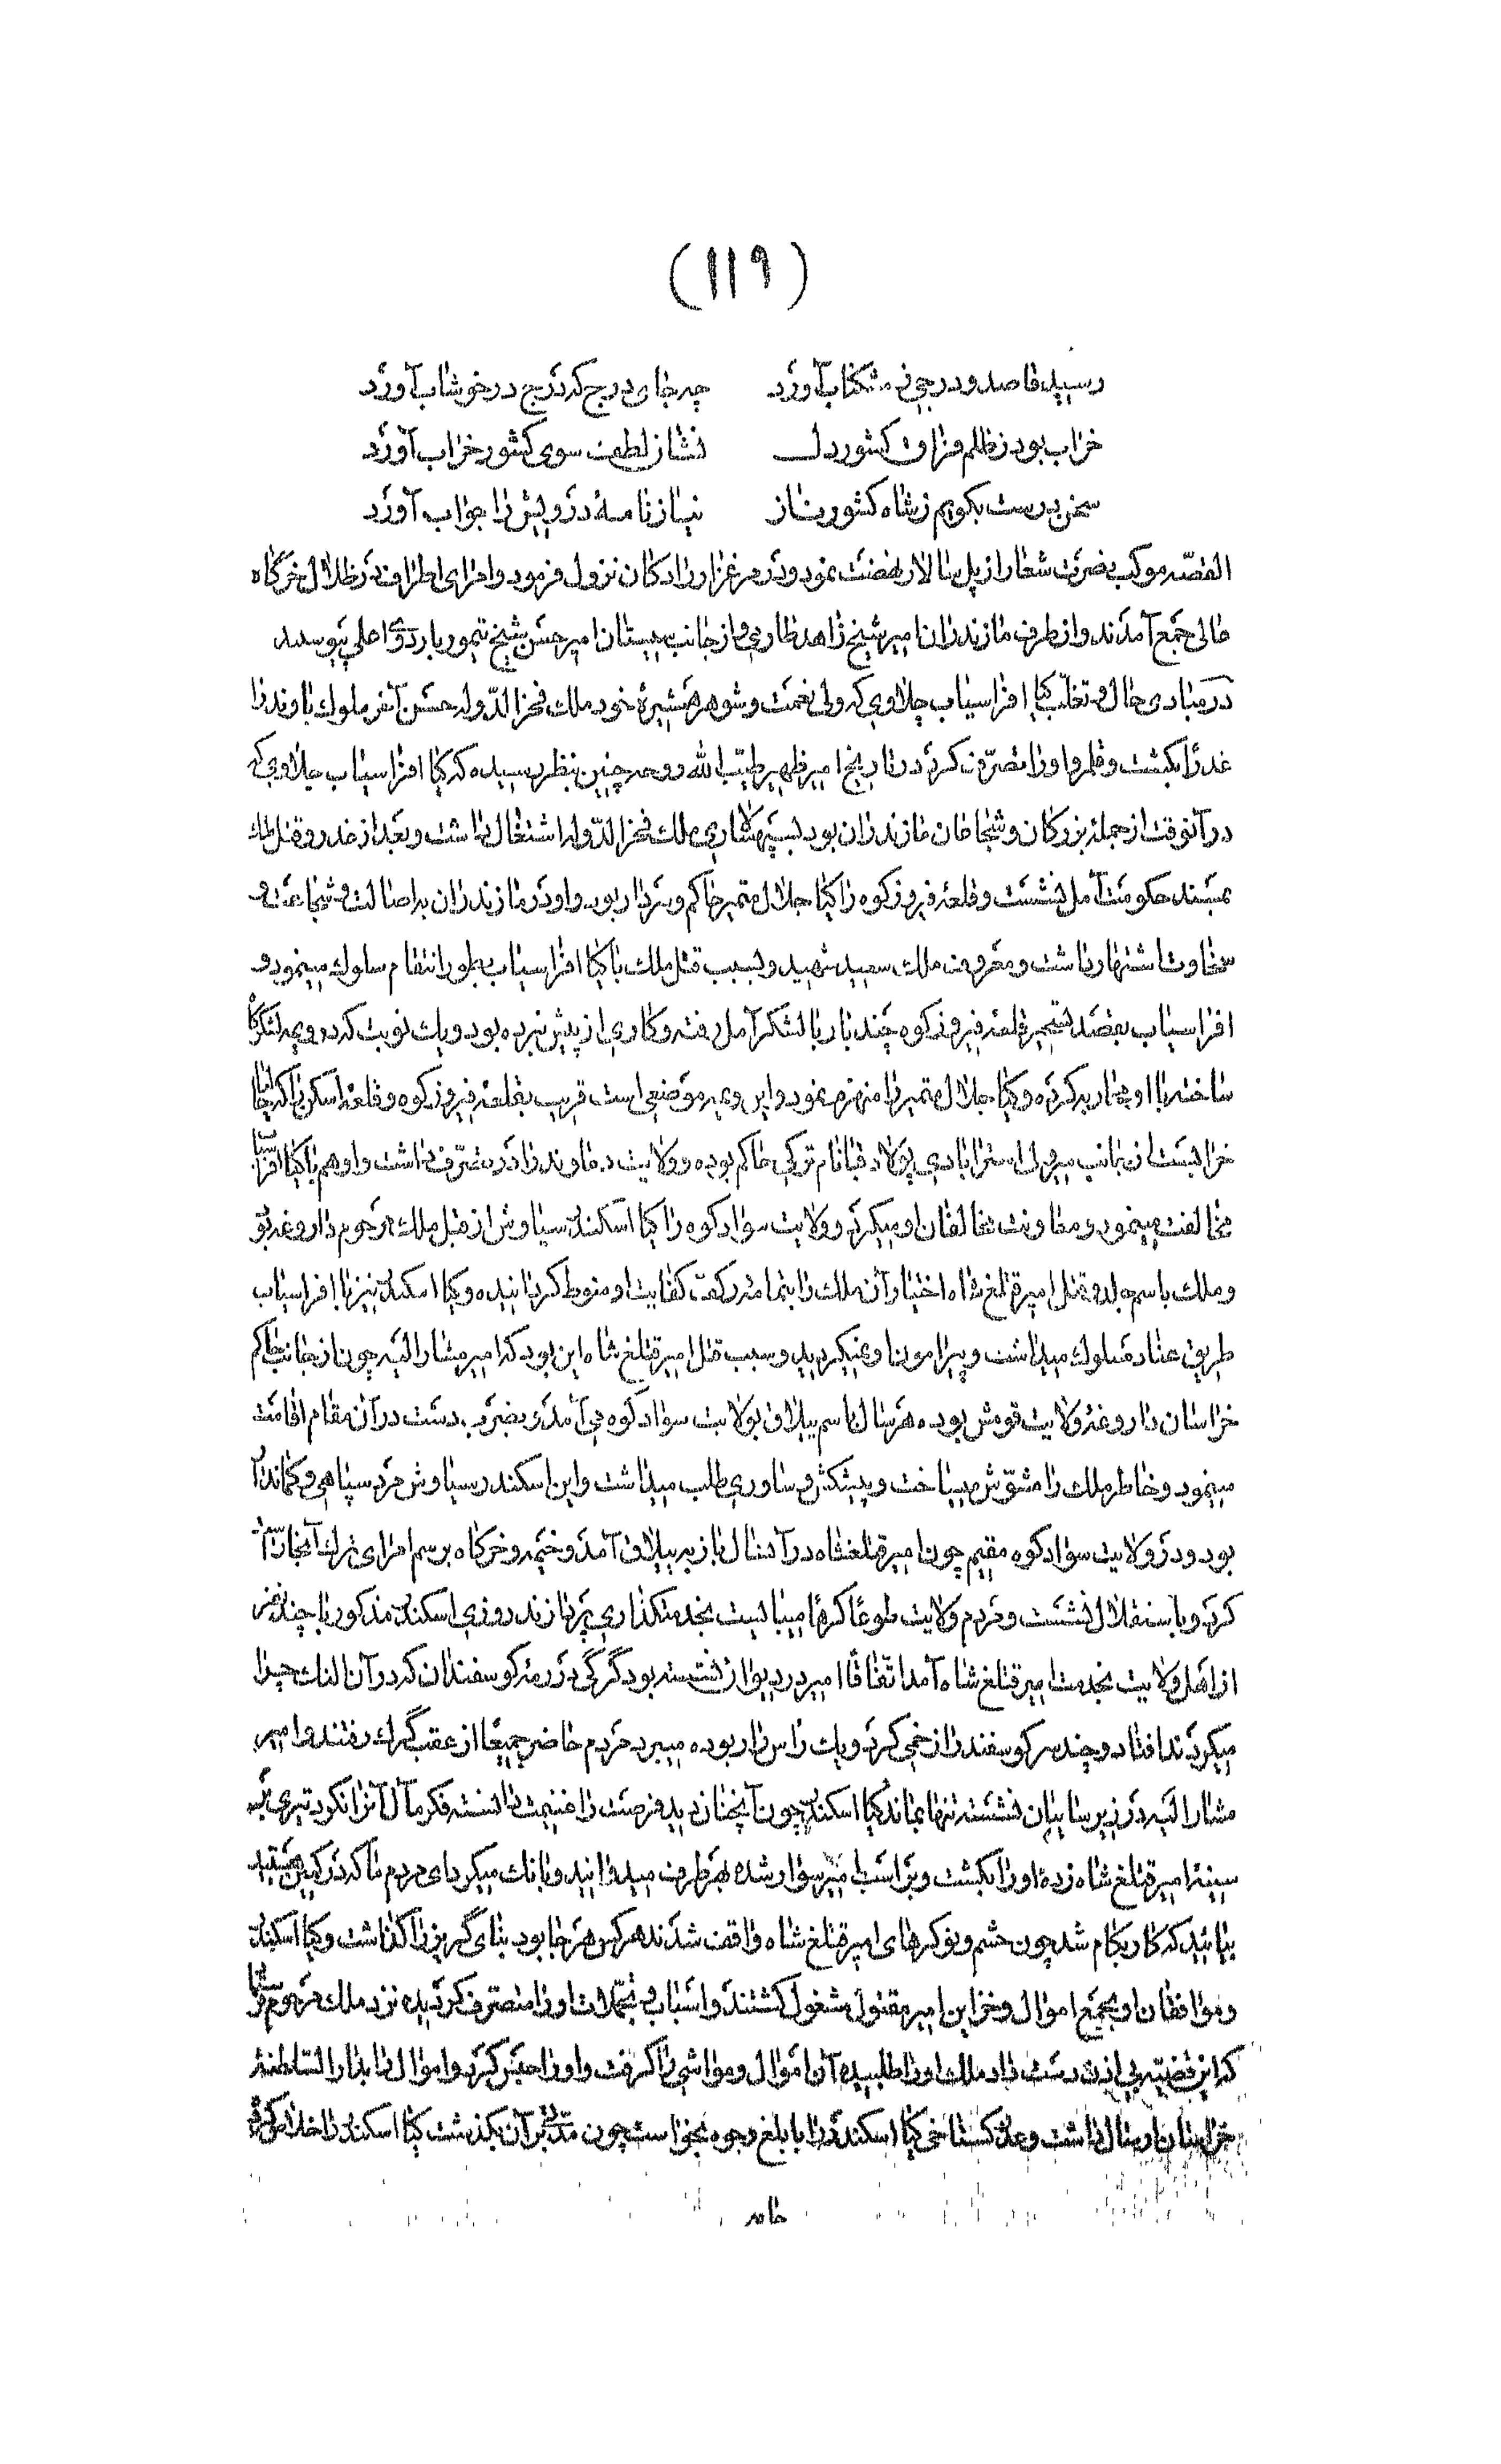 (۱۱۹)
رسید قاصد و درجی ز مشکناب آورد چه جای درج که درج در خوشاب آورد
خراب بود ز ظلم فراق کشور دل نشان لطف سوی کشور خراب آورد
سخن درست بگویم ز شاه کشور ناز نیازنامهٔ درویش را جواب آورد
القصّه موکب نصرت شعار از پل سالار نهضت نمود و در مرغزار رادکان نزول فرمود و امرای اطراف در ظلال خرگاه
عالی جمع آمدند و از طرف مازندران امیر شیخ زاهد طارمی و از جانب سیستان امیر حسن شیخ تیمور باردوی اعلی پیوستند
در مبادی حال و تغلّب کیا افراسیاب چلاوی که ولی نعمت و شوهر همشیرهٔ خود ملک فخر الدّوله حسن آخر ملوک باوند را
غدرا بکشت و قلمرو او را تصرّف کرد در تاریخ امیر ظهیر طیّب الله روحه چنین بنظر رسیده که کیا افراسیاب چلاوی که
در آنوقت از جمله بزرگان و شجاعان مازندران بود بسپهسالاری ملک فخر الدّوله اشتغال داشت و بعد از غدر و قتل ملک
بمسند حکومت آمل نشست و قلعهٔ فیروزکوه را کیا جلال متمیر حاکم و سردار بود و او در مازندران به اصالت و شجاعت و
سخاوت اشتهار داشت و معروف ملک سعید شهید و بسبب قتل ملک با کیا افراسیاب بطور انتقام سلوک مینمود و
افراسیاب بقصد تسخیر قلعه فیروزکوه چند بار با لشکر آمل رفته و کاری از پیش نبرده بود و یک نوبت که در ویمه لشکرگاه
ساخته با او محاربه کرده و کیا جلال متمیر را منهزم نمود و این ویمه موضعی است قریب بقلعه فیروزکوه و قلعهٔ اسکن را که حالیا
خرابست از جانب میرولی استرابادی پولاد قبا نام ترکی حاکم بوده و ولایت دماوند را در تصرّف داشت و او هم با کیا افراسیاب
مخالفت مینمود و معاونت مخالفان او میکرد و ولایت سوادکوه را کیا اسکندر سیاوش از قبل ملک مرحوم داروغه بود
و ملک باسم جلدوی قتل امیر قتلغ شاه اختیار آن ملک را بتمامه در کف کفایت او منوط گردانیده و کیا اسکندر نیز با افراسیاب
طریق عناد مسلوک میداشت و پیرامون او نمیگردید و سبب قتل امیر قتلغ شاه این بود که امیر مشار الیه چون از جانب حاکم
خراسان داروغه ولایت قومش بوده هر سال باسم ییلاق بولایت سوادکوه می آمد و بضرب دست در آن مقام اقامت
مینمود و خاطر ملک را مشوّش میساخت و پیشکش و ساوری طلب میداشت و این اسکندر سیاوش مرد سپاهی و کماندار
بود و در ولایت سوادکوه مقیم چون امیر قتلغشاه در آنسال باز به ییلاق آمد و خیمه و خرگاه برسم امرای ترک آنجا راست
کرد و باستقلال نشست و مردم ولایت طوعا کرها میبایست بخدمتگذاری پردازند روزی اسکندر مذکور با چند نفر
از اهل ولایت بخدمت امیر قتلغ شاه آمد اتّفاقا امیر در دیوان نشسته بود گرگی در رمهٔ گوسفندان که در آن النک چرا
میکردند افتاد و چند سر گوسفند را زخمی کرد و یک راس را ربوده میبرد مردم حاضر جمیعا از عقب گرگ رفتند و امیر
مشار الیه در زیر سایبان نشسته تنها بماند کیا اسکندر چون آنچنان دید فرصت را غنیمت دانسته فکر مآل آنرا نکرد تیری بر
سینهٔ امیر قتلغ شاه زده او را بکشت و بر اسب امیر سوار شده بهر طرف میدوانید و بانک میکرد ای مردم ما که در کمین هستید
بیائید که کار بکام شد چون حشم و نوکرهای امیر قتلغ شاه واقف شدند هر کس هر جا بود بنای گریز را گذاشت و کیا اسکندر
و موافقان او بجمع اموال و خزاین امیر مقتول مشغول گشتند و اسباب و تجمّلات او را متصرف گردیده نزد ملک مرحوم
که این قضیّه بی اذن دست داد ملک او را طلبیده آن اموال و مواشی را گرفت و او را حبس کرد و اموال را بدار السّلطنهٔ
خراسان ارسال داشت و عذر گستاخی کیا اسکندر را بابلغ وجوه بخواست چون مدّتی بر آن بگذشت کیا اسکندر را خلاص کرد